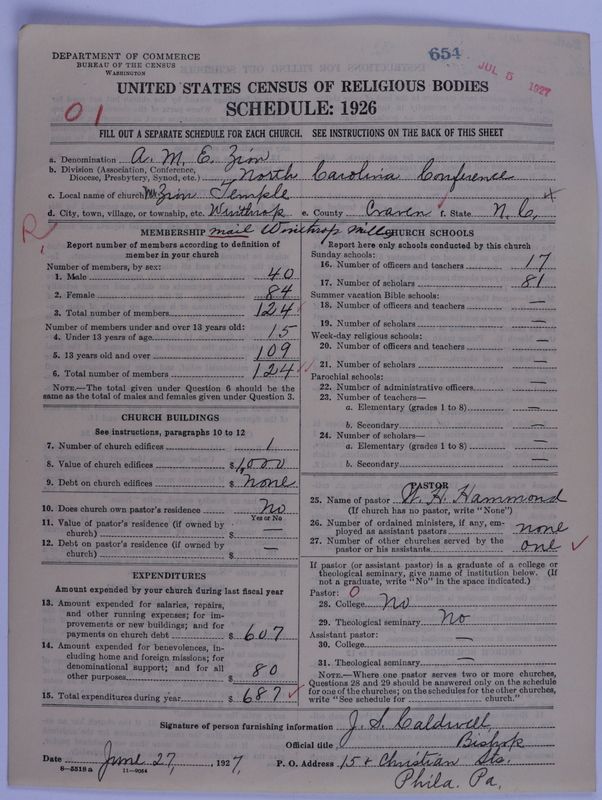 DEPARTMENT OF COMMERCE
BUREAU OF THE CENSUS
WASHINGTON
654
JUL 5 1927
UNITED STATES CENSUS OF RELIGIOUS BODIES
SCHEDULE: 1926
01
FILL OUT A SEPARATE SCHEDULE FOR EACH CHURCH. SEE INSTRUCTIONS ON THE BACK OF THIS SHEET
a. Denomination A. M. E. Zion
b. Division (Association, Conference, Diocese, Presbytery, Synod, etc.) North Carolina Conference
c. Local name of church Zion Temple
d. City, town, village, or township, etc. Winthrop e. County Craven f. State N. C.
R
mail Winthrop Mills
MEMBERSHIP
Report number of members according to definition of member in your church
Number of members, by sex:
1. Male 40
2. Female 84
3. Total number of members 124
Number of members under and over 13 years old:
4. Under 13 years of age 15
5. 13 years old and over 109
6. Total number of members 124
NOTE.—The total given under Question 6 should be the same as the total of males and females given under Question 3.
CHURCH BUILDINGS
See instructions, paragraphs 10 to 12
7. Number of church edifices 1
8. Value of church edifices $ 1,000
9. Debt on church edifices $ none
10. Does church own pastor's residence No
Yes or No
11. Value of pastor's residence (if owned by church) $ —
12. Debt on pastor's residence (if owned by church) $ —
EXPENDITURES
Amount expended by your church during last fiscal year
13. Amount expended for salaries, repairs, and other running expenses; for improvements or new buildings; and for payments on church debt $ 607
14. Amount expended for benevolences, including home and foreign missions; for denominational support; and for all other purposes $ 80
15. Total expenditures during year $ 687
CHURCH SCHOOLS
Report here only schools conducted by this church
Sunday schools:
16. Number of officers and teachers 17
17. Number of scholars 81
Summer vacation Bible schools:
18. Number of officers and teachers —
19. Number of scholars —
Week-day religious schools:
20. Number of officers and teachers —
21. Number of scholars —
Parochial schools:
22. Number of administrative officers —
23. Number of teachers—
a. Elementary (grades 1 to 8) —
b. Secondary —
24. Number of scholars—
a. Elementary (grades 1 to 8) —
b. Secondary —
PASTOR
25. Name of pastor W. H. Hammond
(If church has no pastor, write "None")
26. Number of ordained ministers, if any, employed as assistant pastors none
27. Number of other churches served by the pastor or his assistants one
If pastor (or assistant pastor) is a graduate of a college or theological seminary, give name of institution below. (If not a graduate, write "No" in the space indicated.)
Pastor: 0
28. College No
29. Theological seminary No
Assistant pastor:
30. College —
31. Theological seminary —
NOTE.—Where one pastor serves two or more churches, Questions 28 and 29 should be answered only on the schedule for one of the churches; on the schedules for the other churches, write "See schedule for church."
Signature of person furnishing information J. S. Caldwell
Official title Bishop
Date June 27, 1927. P. O. Address 15 & Christian Sts.
8—5518 a 11—9054
Phila. Pa.